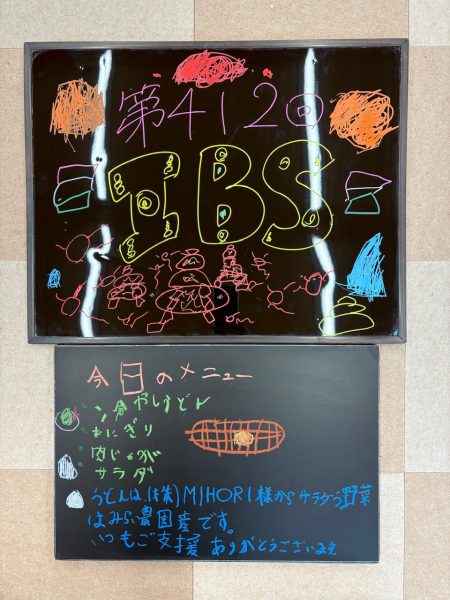 第412回
IBS
今日のメニュー
冷やしうどん
おにぎり
肉じゃが
サラダ
うどんは、(株)MIHORI様からサラダの野菜
はみらい農園産です。
いつもご支援ありがとうございます